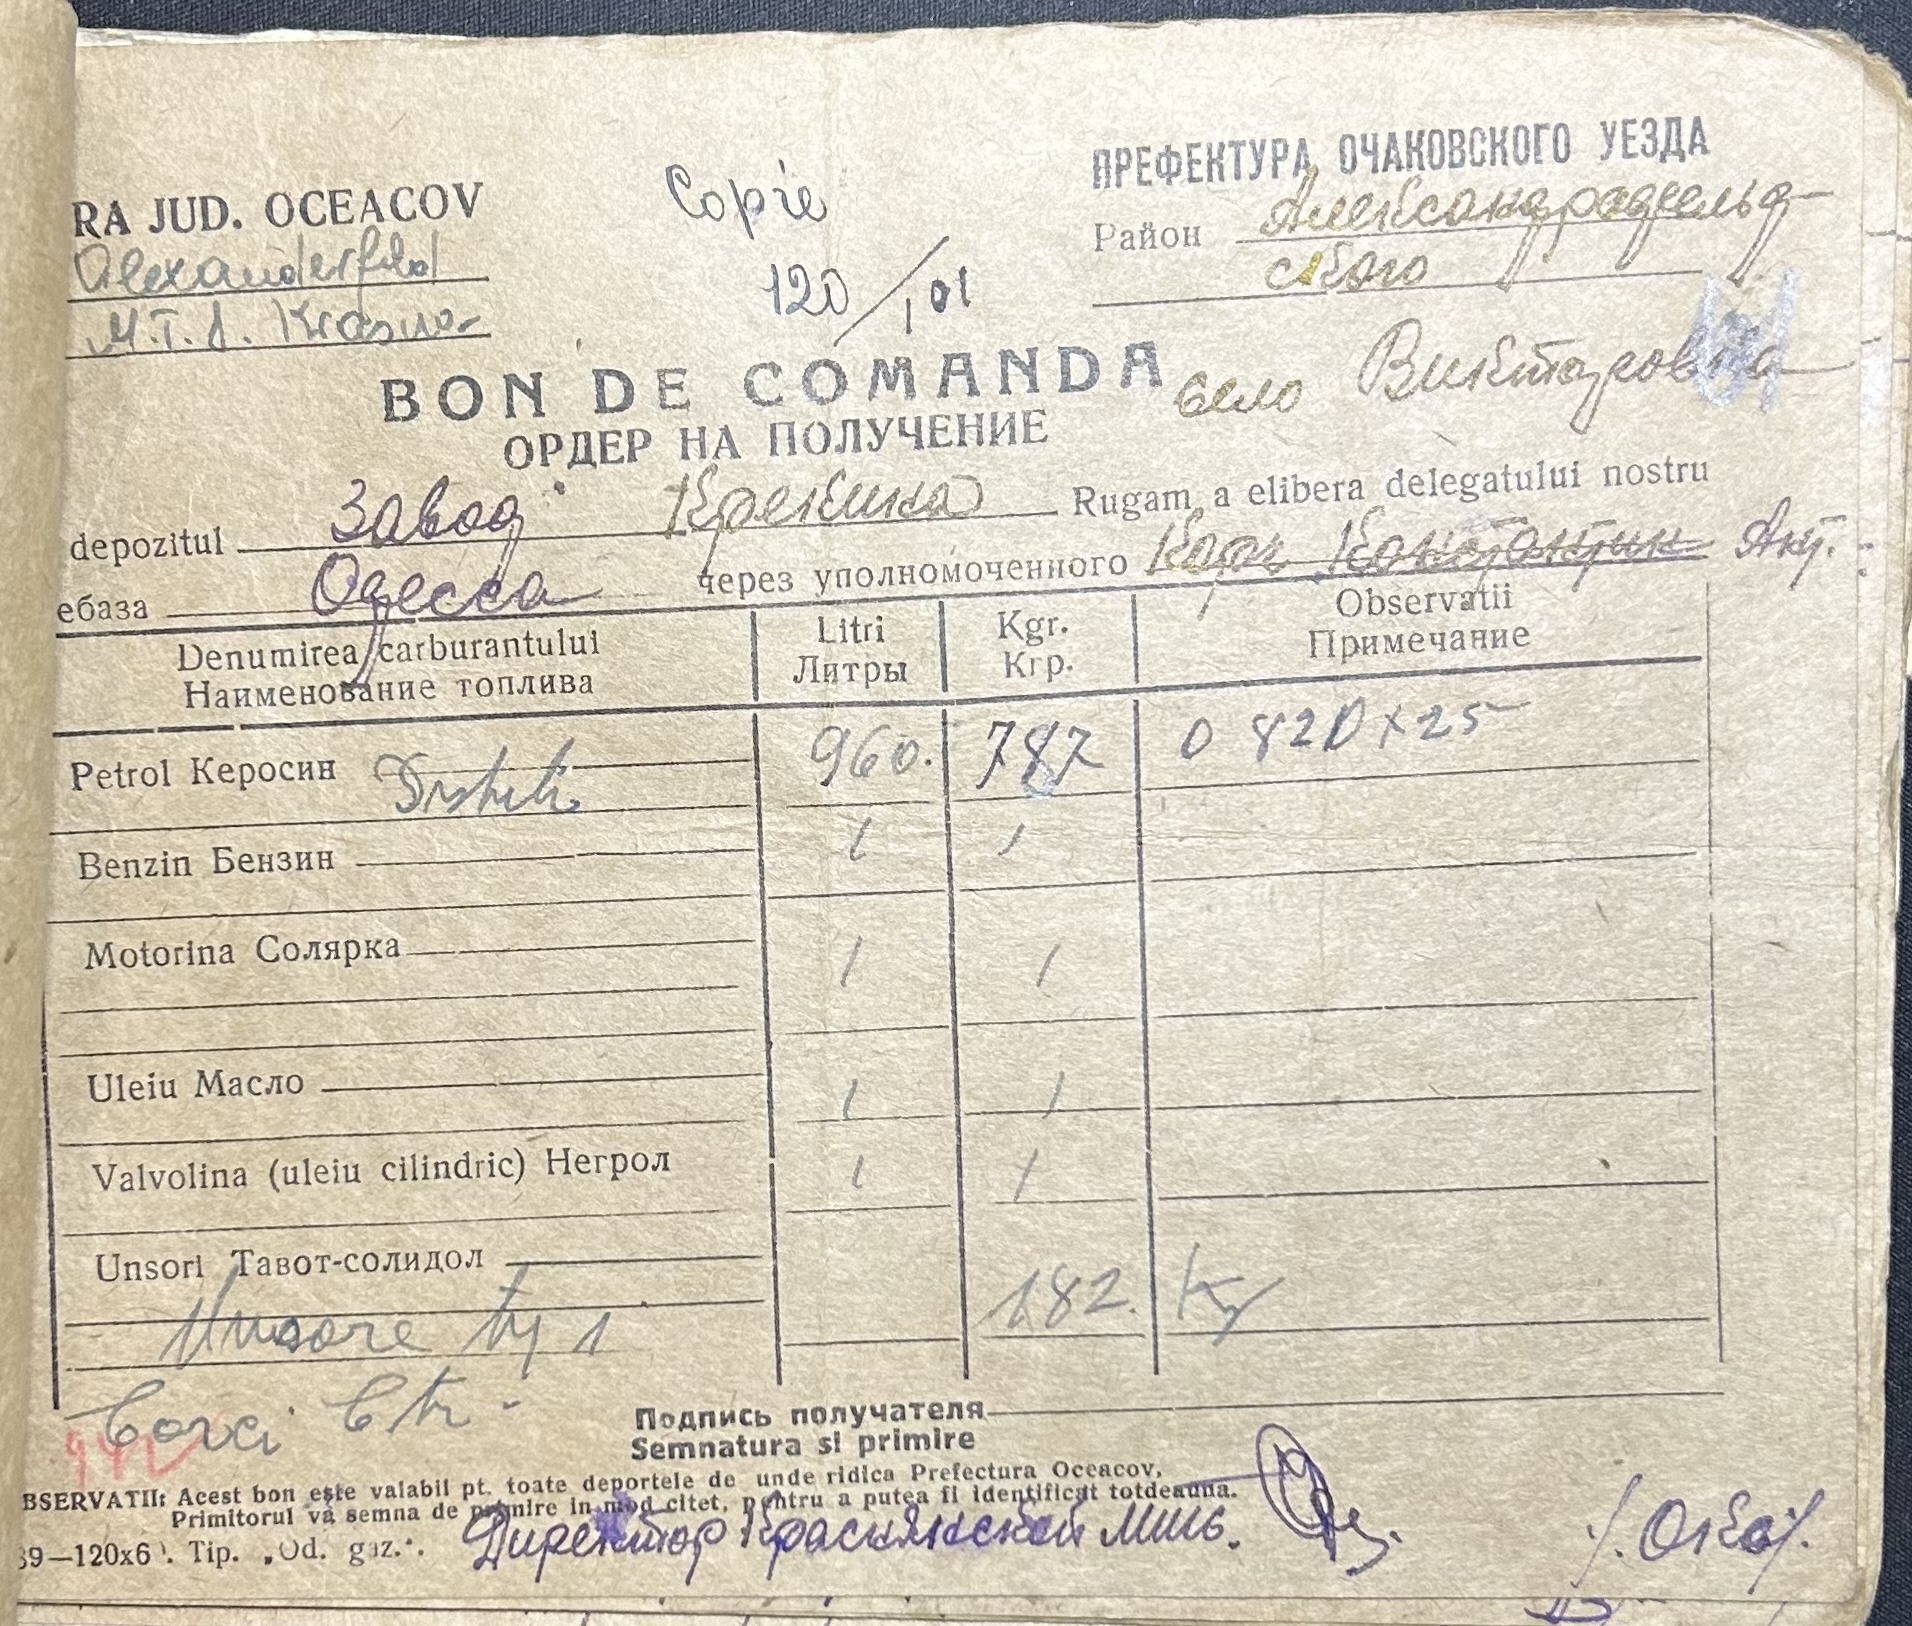 RA JUD. OCEACOV
Alexanderfeld
M.T.S. Krasno-
Copie
120/101
ПРЕФЕКТУРА ОЧАКОВСКОГО УЕЗДА
Район Александрафельд-
ского
село Викторовка
BON DE COMANDA
ОРДЕР НА ПОЛУЧЕНИЕ
depozitul Завод Крекинга Rugam a elibera delegatului nostru
ебаза Одесса через уполномоченного Константин Ант.
Denumirea carburantului Litri Kgr. Observatii
Наименование топлива Литры Кгр. Примечание
Petrol Керосин 960. 787 0 820 x 25
Benzin Бензин
Motorina Солярка
Uleiu Масло
Valvolina (uleiu cilindric) Негрол
Unsori Тавот-солидол
Unsore tip 1 182. Kg
Подпись получателя
Semnatura si primire
BSERVATII: Acest bon este valabil pt. toate deportele de unde ridica Prefectura Oceacov,
Primitorul va semna de primire in mod citet, pentru a putea fi identificat totdeauna.
39—120x6 . Tip. „Od. gaz.".
Директор Краснянской мтс.